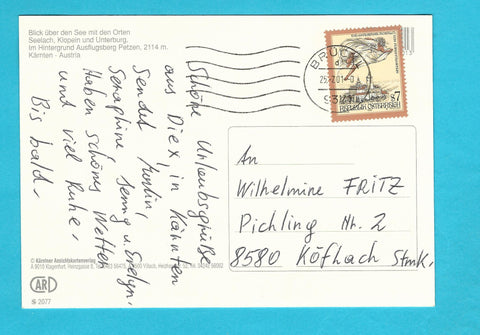 Blick über den See mit den Orten
Seelach, Klopein und Unterburg,
im Hintergrund Ausflugsberg Petzen, 2114 m.
Kärnten - Austria
Schöne Urlaubsgrüße
aus Diex, in Kärnten
sendet
Seraphine, Jenny u. Evelyn.
Haben schönes Wetter
und viel Ruhe,
Bis bald.
© Kärntner Ansichtskartenverlag
AR
S 2077
BRÜCKL
REPUBLIK ÖSTERREICH
S7
An
Wilhelmine FRITZ
Pichling Nr. 2
8580 Köflach Stmk.